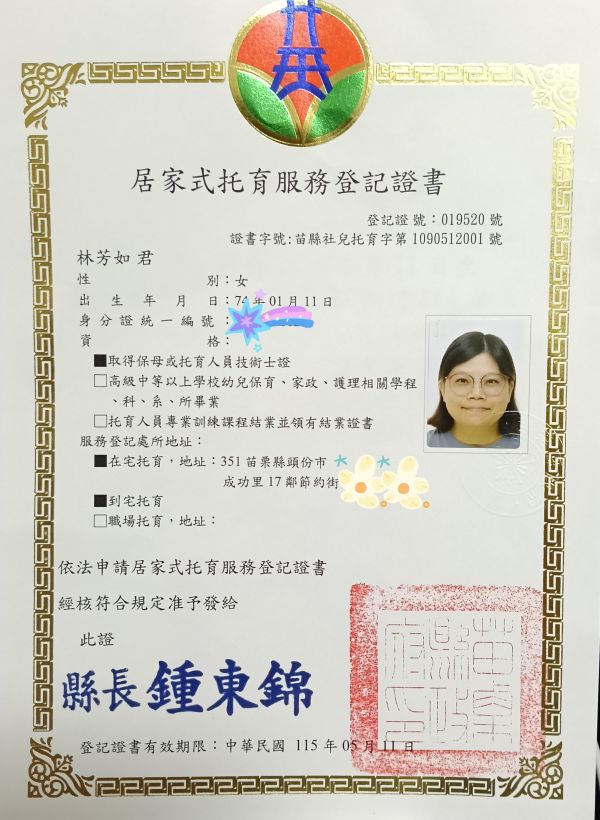 居家式托育服務登記證書
登記證號：019520號
證書字號:苗縣社兒托育字第1090512001號
林芳如 君
性別：女
出生年月日：74年01月11日
身分證統一編號：
資格：
■取得保母或托育人員技術士證
□高級中等以上學校幼兒保育、家政、護理相關學程
、科、系、所畢業
□托育人員專業訓練課程結業並領有結業證書
服務登記處所地址：
■在宅托育，地址：351苗栗縣頭份市
成功里17鄰節約街
■到宅托育
□職場托育，地址：
依法申請居家式托育服務登記證書
經核符合規定准予發給
此證
縣長 鍾東錦
苗栗縣政府印
登記證書有效期限：中華民國 115年05月11日